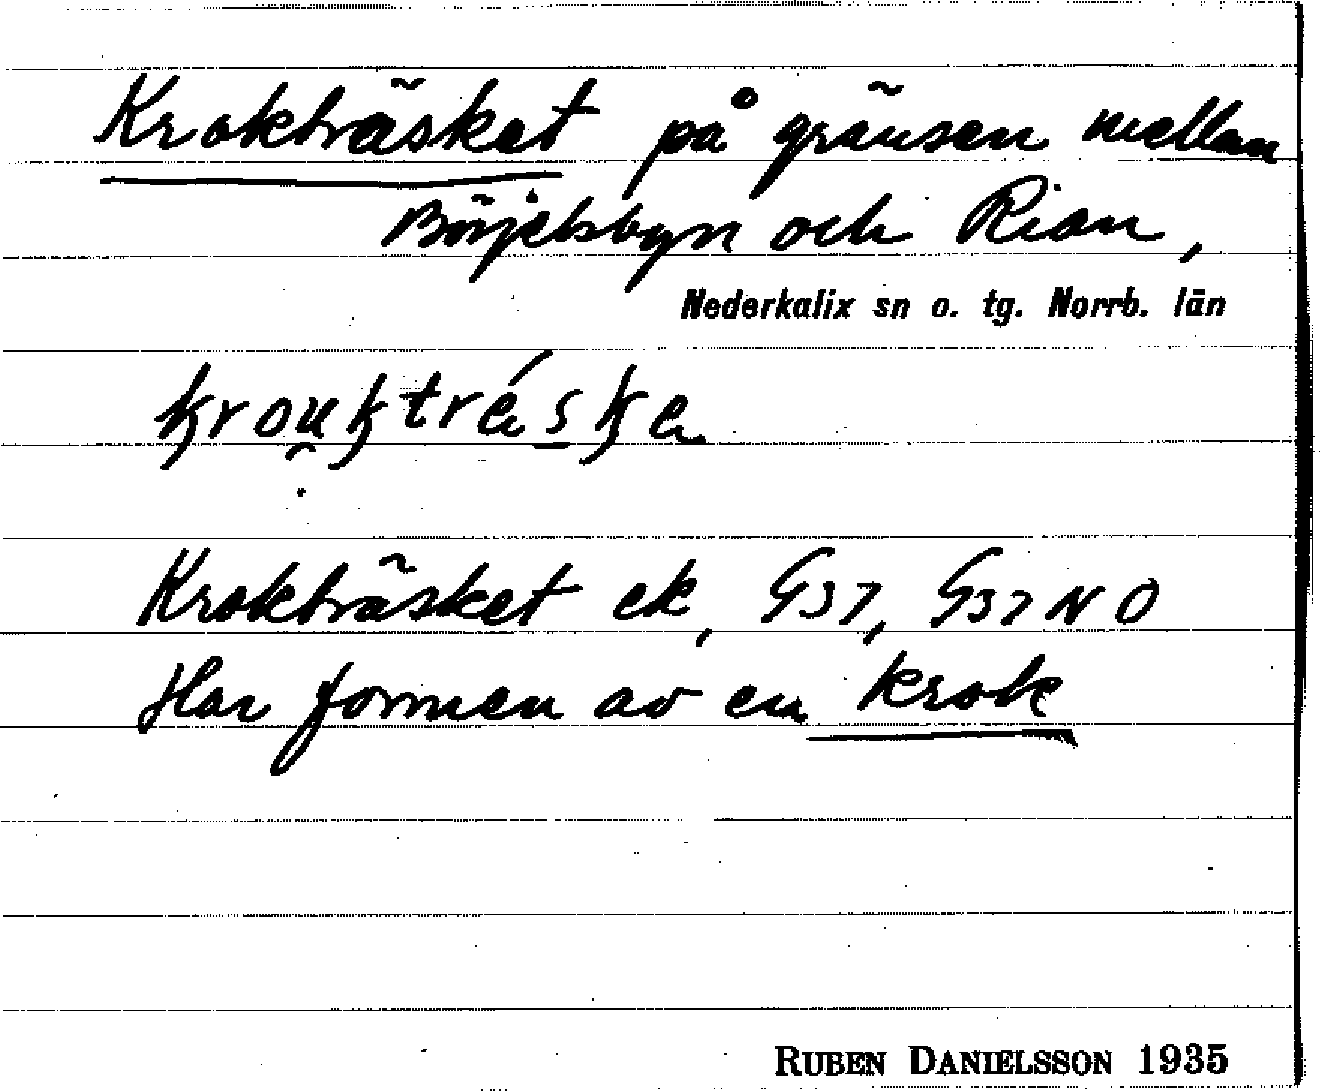 Krokträsket på gränsen mellan
Börjelsbyn och Rian,
Nederkalix sn o. tg. Norrb. län
krou̯ktrésка
Krokträsket ek, G37, G37 NO
Har formen av en krok
RUBEN DANIELSSON 1935